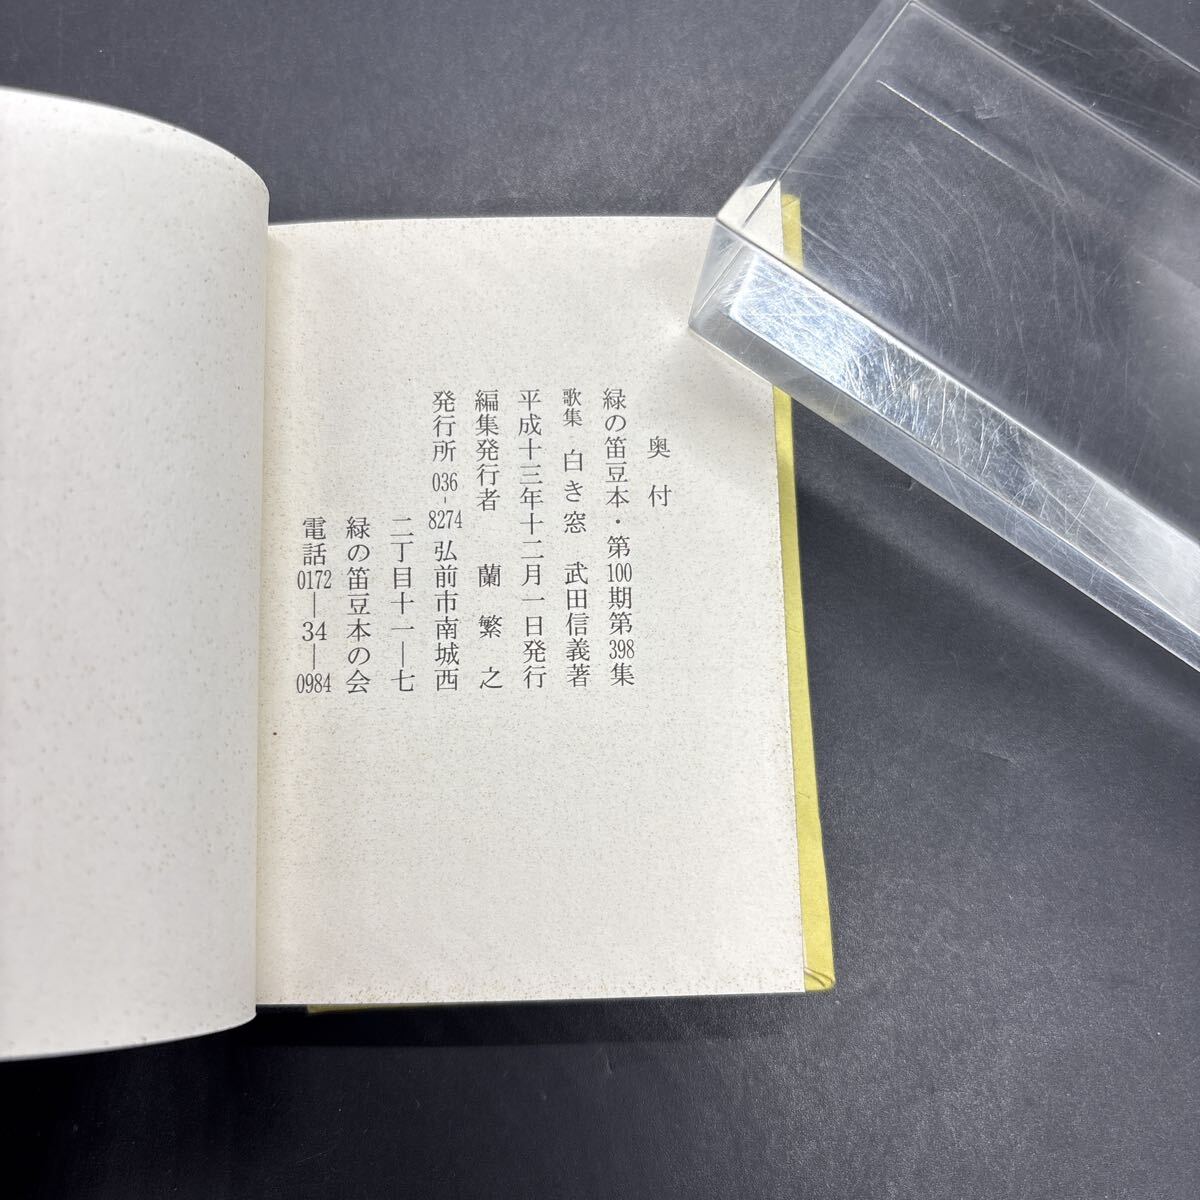 奥付
緑の笛豆本・第100期第398集
歌集 白き窓 武田信義著
平成十三年十二月一日発行
編集発行者 蘭繁之
発行所 036-8274 弘前市南城西
二丁目十一―七
緑の笛豆本の会
電話0172―34―0984